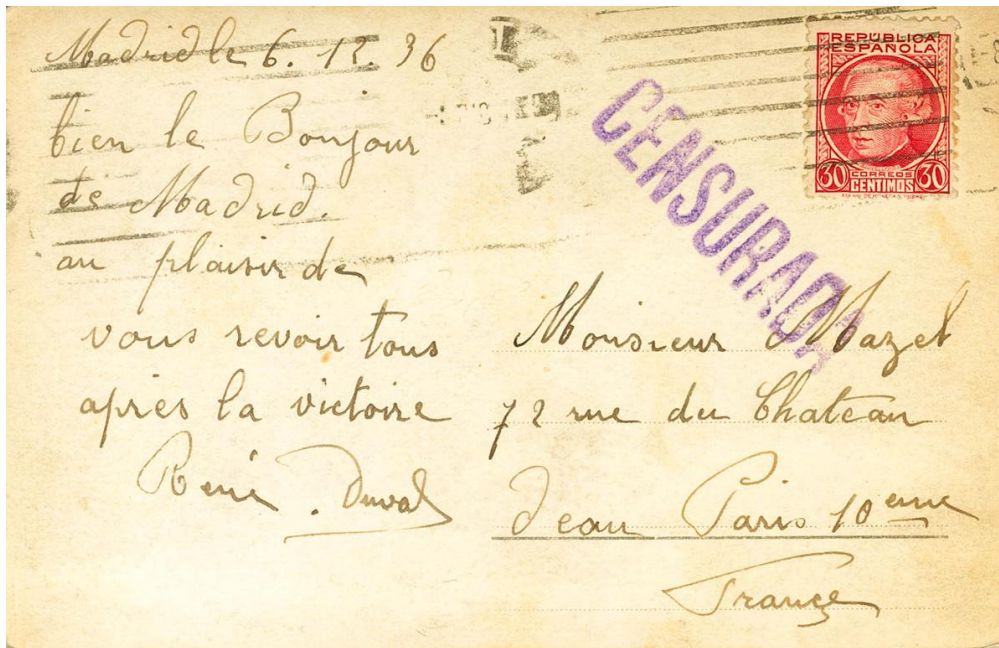 Madrid le 6. 12. 36
bien le Bonjour
de Madrid.
au plaisir de
vous revoir tous
après la victoire
René. Duval
CENSURADA
REPUBLICA
ESPAÑOLA
30 CORREOS 30
CENTIMOS
Monsieur Mazet
72 rue du Chateau
deau Paris 10eme
France